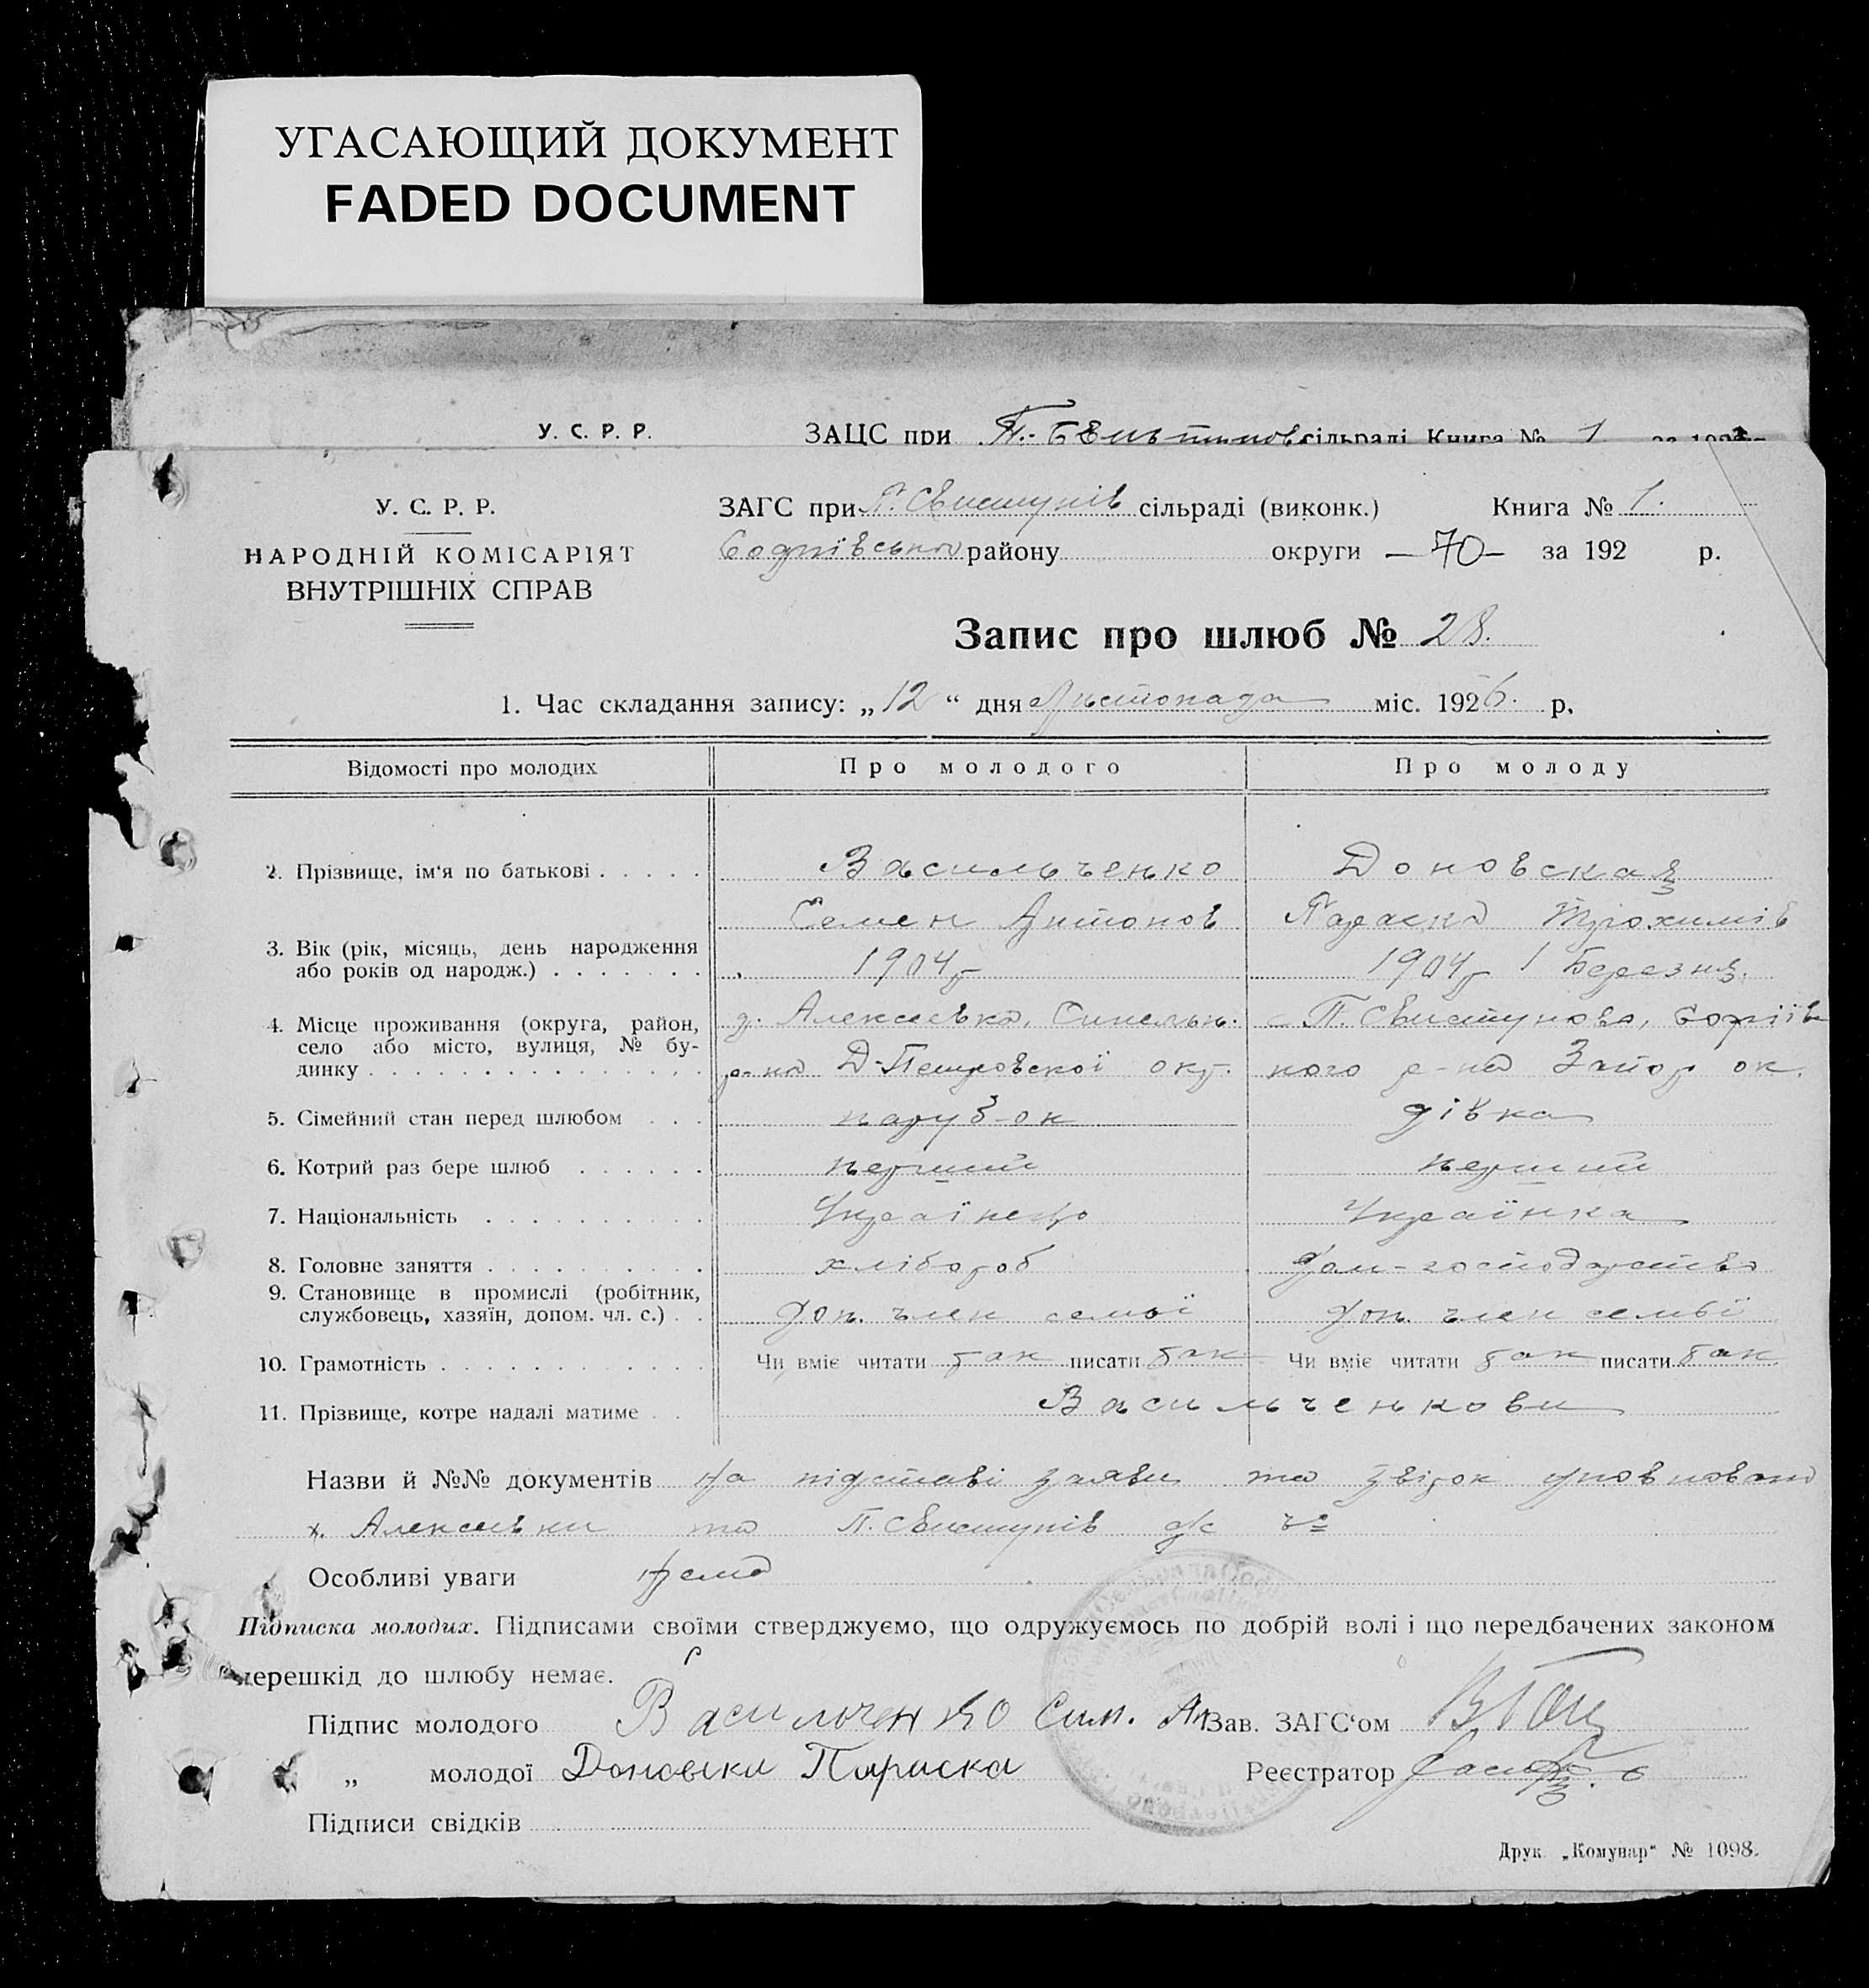 УГАСАЮЩИЙ ДОКУМЕНТ
FADED DOCUMENT
У. С. Р. Р. ЗАЦС при сільраді Книга № 1
У. С. Р. Р.
НАРОДНІЙ КОМІСАРІЯТ
ВНУТРІШНІХ СПРАВ
ЗАГС при П. Свистунів сільраді (виконк.) Книга № 1.
району округи —70— за 192 р.
Запис про шлюб № 28.
1. Час складання запису: „12“ дня Листопада міс. 1926. р.
Відомості про молодих Про молодого Про молоду
2. Прізвище, ім'я по батькові Васильченко Доновская
Семен Антонов Параска Трохимів
3. Вік (рік, місяць, день народження
або років од народж.) 1904 р 1904 р 1 Березня.
4. Місце проживання (округа, район,
село або місто, вулиця, № бу-
динку
Алексеевка, Синельн. П. Свистунова,
р-на Д-Петровской окр. кого р-на Запор ок.
5. Сімейний стан перед шлюбом парубок дівка
6. Котрий раз бере шлюб перший перший
7. Національність Українець Українка
8. Головне заняття хлібороб дом-господарство
9. Становище в промислі (робітник,
службовець, хазяїн, допом. чл. с.) доп. член семьї доп. член семьї
10. Грамотність Чи вміє читати так писати так Чи вміє читати так писати так
11. Прізвище, котре надалі матиме Васильченкови
Назви й №№ документів на підставі заяви та звірок
х. Алексеевки та П. Свистунів
Особливі уваги Нема
Підписка молодих. Підписами своїми стверджуємо, що одружуємось по добрій волі і що передбачених законом
перешкід до шлюбу немає.
Підпис молодого Васильченко Сим. Ан Зав. ЗАГС'ом
„ молодої Доновска Параска Реєстратор
Підписи свідків
Друк. „Комунар" № 1098.